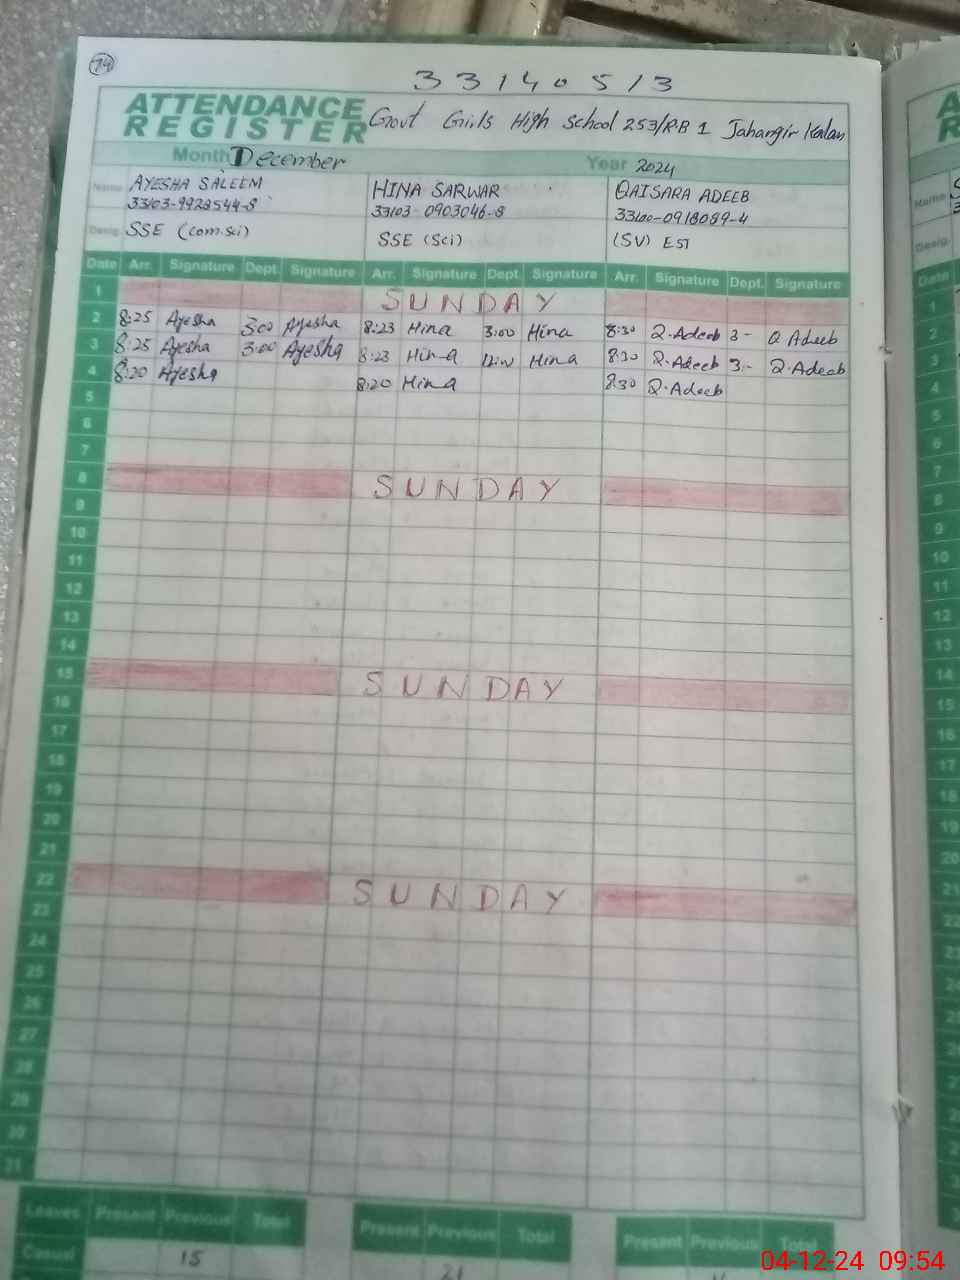 74
33140513
ATTENDANCE REGISTER Govt Girls High School 253/R.B 1 Jahangir Kalan
Month December Year 2024
Name AYESHA SALEEM HINA SARWAR QAISARA ADEEB Name
33103-9928544-8 33103-0903046-8 33100-0918089-4
Desig. SSE (com.sci) SSE (Sci) (SV) EST Desig.
Date Arr. Signature Dept. Signature Arr. Signature Dept. Signature Arr. Signature Dept. Signature Date
1 SUNDAY 1
2 8:25 Ayesha 3:00 Ayesha 8:23 Hina 3:00 Hina 8:30 Q.Adeeb 3- Q Adeeb 2
3 8:25 Ayesha 3:00 Ayesha 8:23 Hina Hina 8:30 Q.Adeeb 3:- Q.Adeeb 3
4 8:20 Ayesha 8:20 Hina 8:30 Q.Adeeb 4
5 5
6 6
7 7
8 SUNDAY 8
9 9
10 10
11 11
12 12
13 13
14 14
15 SUNDAY 15
16 16
17 17
18 18
19 19
20 20
21 21
22 SUNDAY 22
23
24
25
26
27
28
29
30
31
Leaves Present Previous Total Present Previous Total Present Previous Total
Casual 15 21
04-12-24 09:54